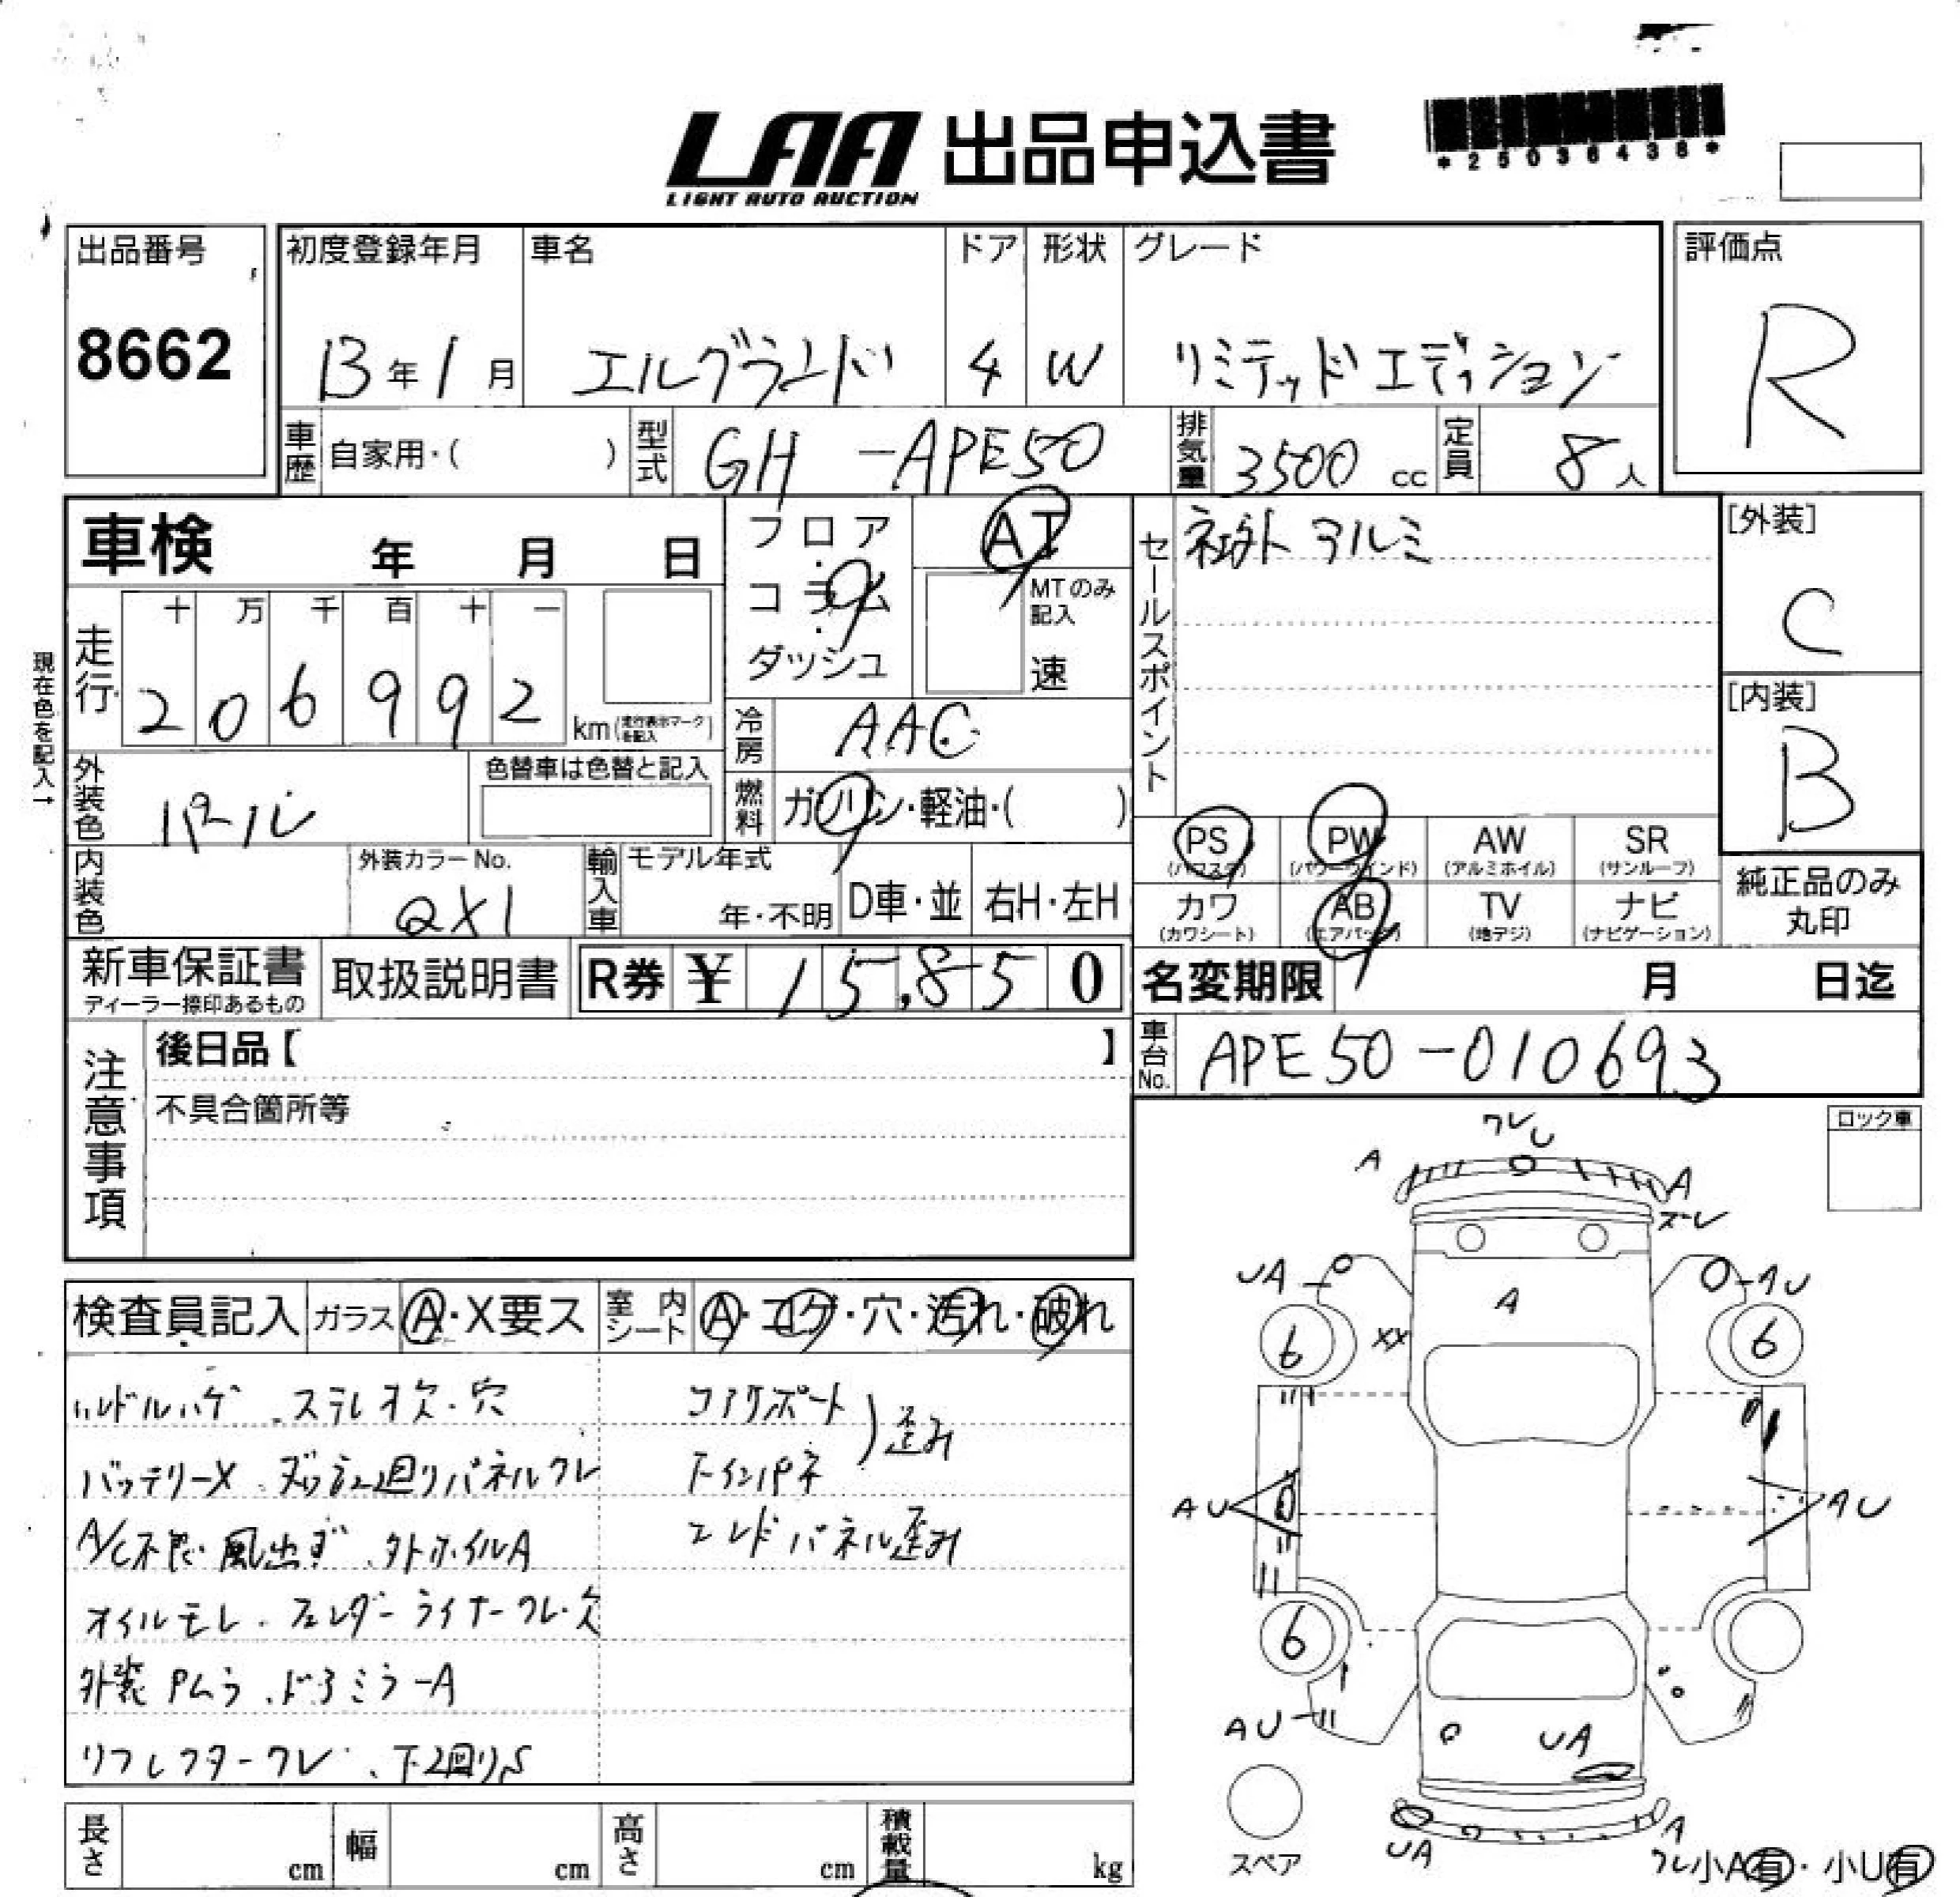 LAA 出品申込書
LIGHT AUTO AUCTION
*25036438*
出品番号
8662
初度登録年月
13年1月
車名
エルグランド
ドア
4
形状
W
グレード
リミテッドエディション
評価点
R
車歴 自家用・( )
型式 GH -APE50
排気量 3500 cc
定員 8人
車検 年 月 日
フロア・コラム・ダッシュ
AT
MTのみ記入
速
セールスポイント
社外アルミ
[外装]
C
[内装]
B
現在色を記入→
走行
十 万 千 百 十 一
2 0 6 9 9 2
km(走行表示マークを記入)
冷房 AAC
外装色 パール
色替車は色替と記入
燃料 ガソリン・軽油・( )
内装色
外装カラーNo.
QX1
輸入車
モデル年式
年・不明
D車・並
右H・左H
PS
(パワステ)
PW
(パワーウインド)
AW
(アルミホイル)
SR
(サンルーフ)
カワ
(カワシート)
AB
(エアバック)
TV
(地デジ)
ナビ
(ナビゲーション)
純正品のみ
丸印
新車保証書
ディーラー捺印あるもの
取扱説明書
R券 ¥ 15,850
名変期限 月 日迄
車台No. APE50-010693
注意事項
後日品【 】
不具合箇所等
ロック車
検査員記入
ガラス A・X要ス
室内シート A・コゲ・穴・汚れ・破れ
ハンドルハゲ、ステレオ欠・穴
バッテリーX、ダッシュ回りパネルワレ
A/C不良・風出ず、外ホイルA
オイルモレ・フェンダーライナーワレ・欠
外装Pムラ、ドアミラーA
リフレクターワレ、下回りS
コアサポート
歪み
インパネ
エンドパネル歪み
ワレ U
A
A
ズレ
UA
AU
A
6
XX
6
AU
AU
6
AU
UA
UA
A
ワレ
スペア
小A有・小U有
長さ cm
幅 cm
高さ cm
積載量 kg